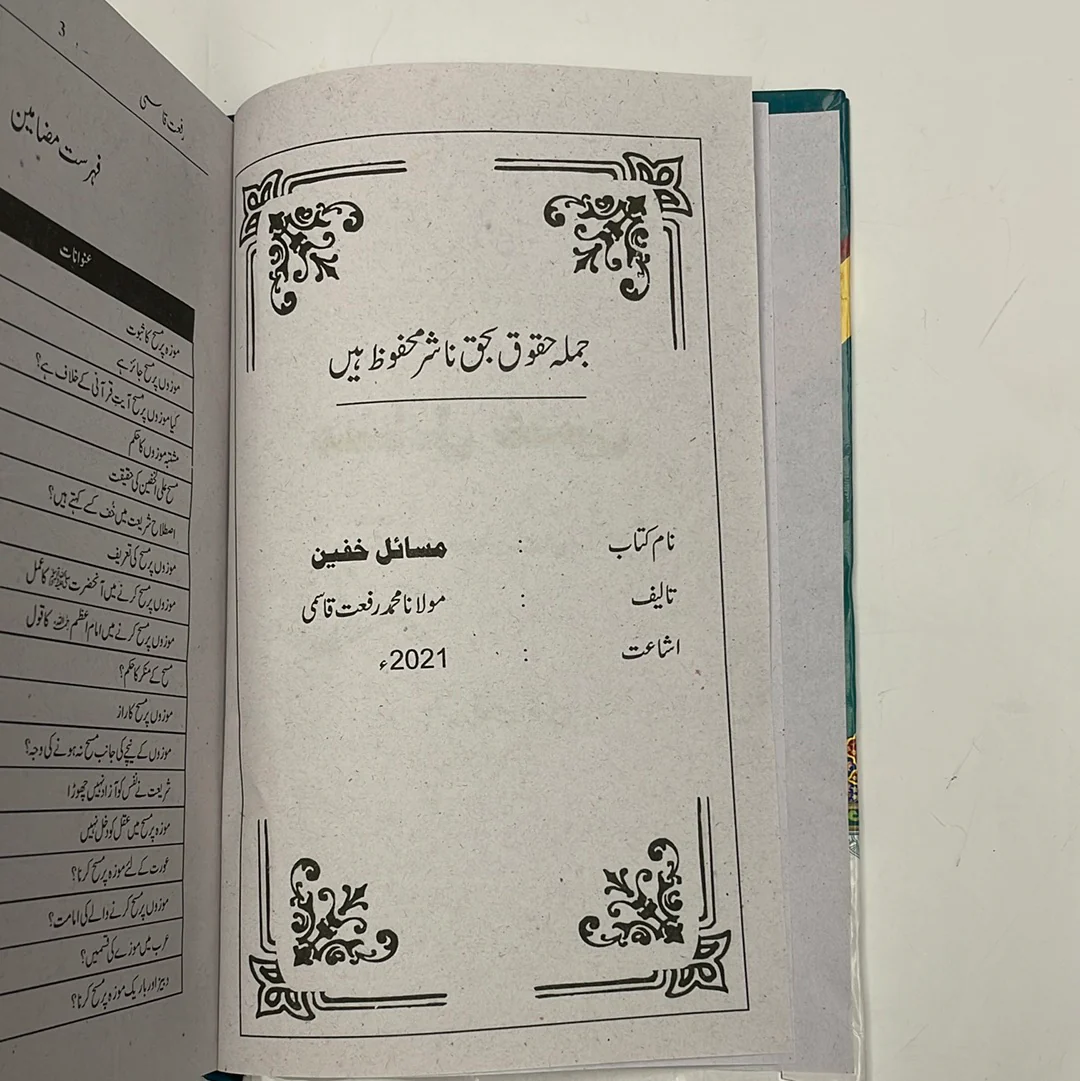 جملہ حقوق بحق ناشر محفوظ ہیں
نام کتاب : مسائل خفین
تالیف : مولانا محمد رفعت قاسمی
اشاعت : 2021ء
3
رفعت قاسمی
فہرست مضامین
عنوانات
موزہ پر مسح کا ثبوت
موزوں پر مسح جائز ہے
کیا موزوں پر مسح آیت قرآنی کے خلاف ہے؟
مشتبہ موزوں کا حکم
مسح علی الخفین کی حقیقت
اصطلاح شریعت میں خف کسے کہتے ہیں؟
موزوں پر مسح کی تعریف
موزوں پر مسح کرنے میں آنحضرت ﷺ کا عمل
موزوں پر مسح کرنے میں امام اعظم رحمہ اللہ کا قول
مسح کے منکر کا حکم؟
موزوں پر مسح کا راز
موزوں کے نیچے کی جانب مسح نہ ہونے کی وجہ؟
شریعت نے نفس کو آزاد نہیں چھوڑا
موزہ پر مسح میں عقل کو دخل نہیں
عورت کے لئے موزہ پر مسح کرنا؟
موزوں پر مسح کرنے والے کی امامت؟
عرب میں موزے کی قسمیں؟
دبیز اور باریک موزہ پر مسح کرنا؟